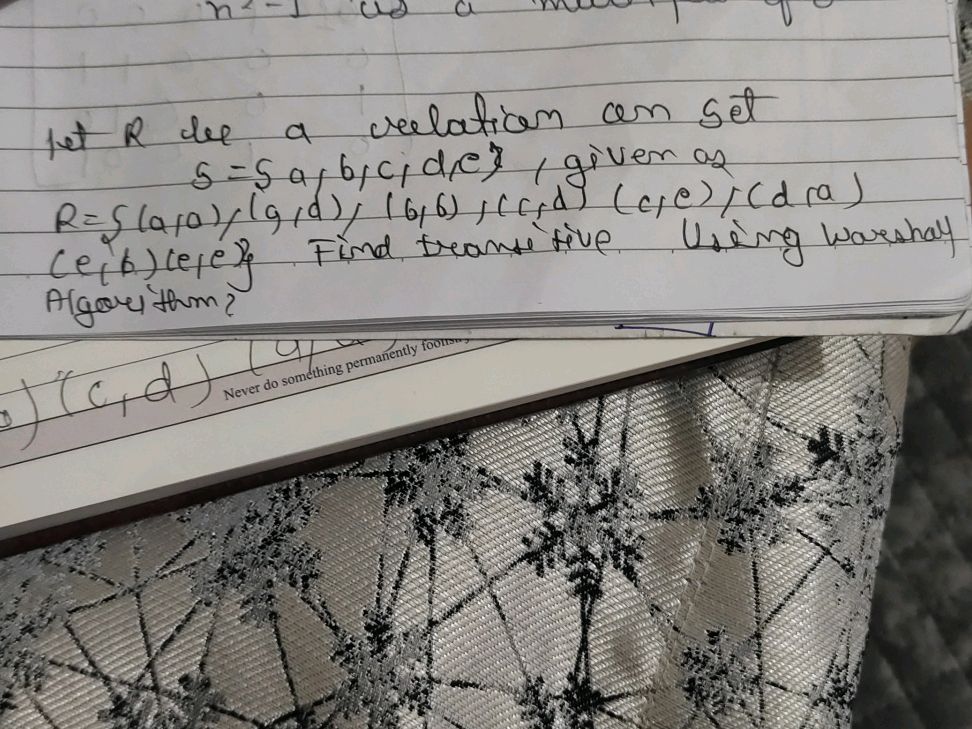 n²-1 as a
Let R be a relation on set
S = { a, b, c, d, e }, given as
R = { (a,a), (a,d), (b,b), (c,d) (c,e), (d,a)
(e,b) (e,e) } Find transitive Using Warshall
Algorithm?
) (c, d)
Never do something permanently foolis